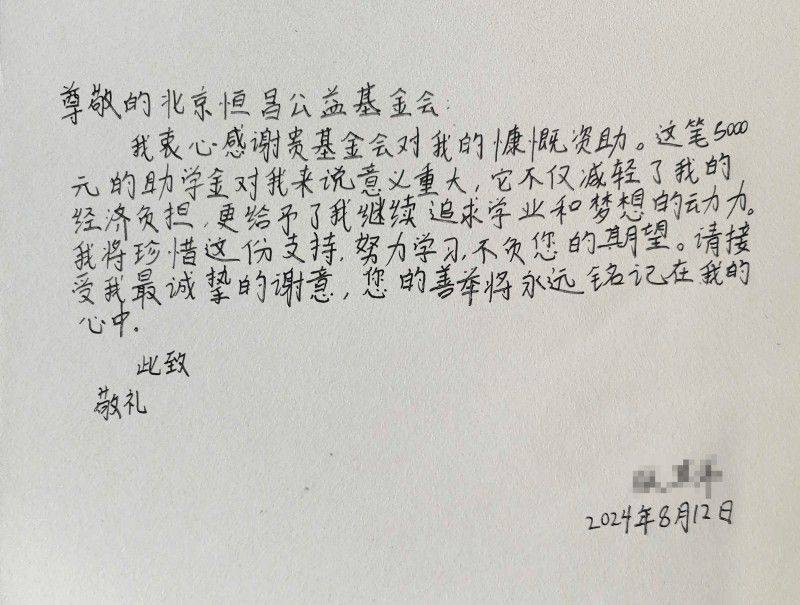 尊敬的北京恒昌公益基金会：
我衷心感谢贵基金会对我的慷慨资助。这笔5000
元的助学金对我来说意义重大，它不仅减轻了我的
经济负担，更给予了我继续追求学业和梦想的动力。
我将珍惜这份支持，努力学习，不负您的期望。请接
受我最诚挚的谢意，您的善举将永远铭记在我的
心中.
此致
敬礼
2024年8月12日